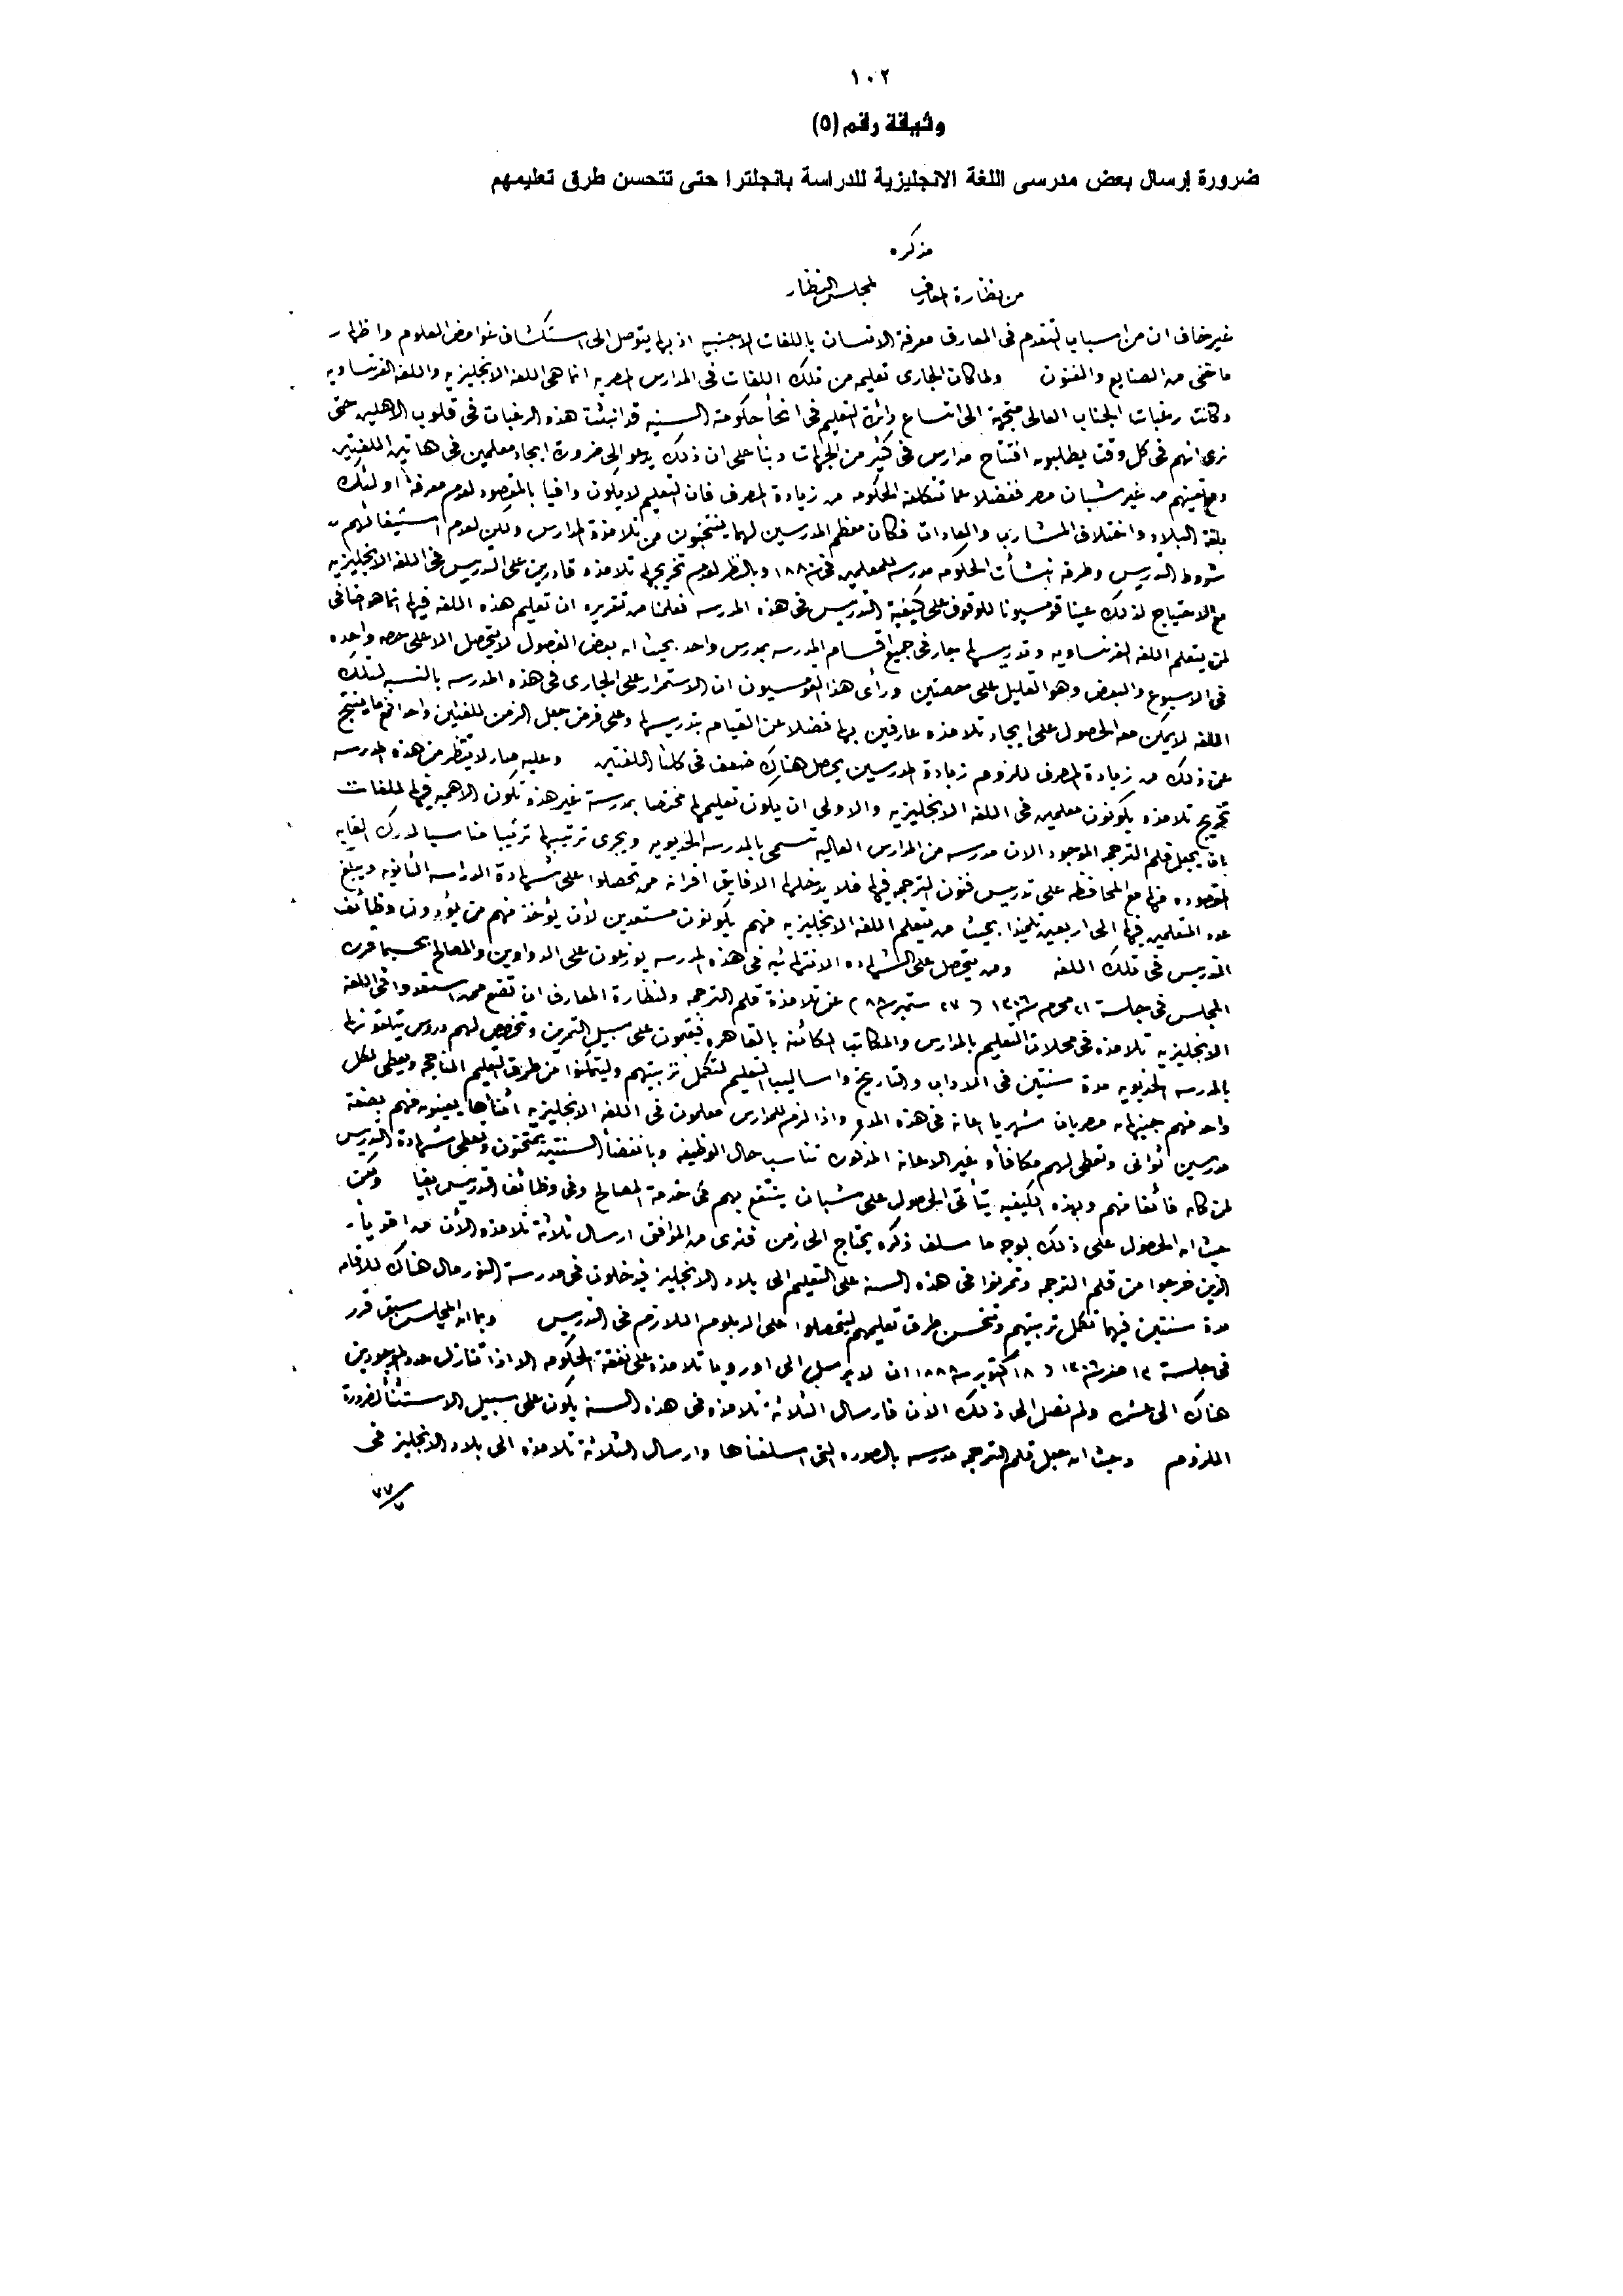 ١٠٢
وثيقة رقم (٥)
ضرورة إرسال بعض مدرسى اللغة الانجليزية للدراسة بانجلترا حتى تتحسن طرق تعليمهم
مذكره
من نظارة المعارف لمجلس النظار
غير خاف ان من اسباب التقدم فى المعارف معرفة الانسان باللغات الاجنبيه اذ بها يتوصل الى استكشاف غوامض العلوم واظهار
ما خفى من الصنايع والفنون ولما كان الجارى تعليمه من تلك اللغات فى المدارس المصريه انما هى اللغه الانجليزيه واللغه الفرنساويه
وكانت رغبات الجناب العالى متجهة الى اتساع دائرة التعليم فى انحأ حكومته السنيه قد انبثت هذه الرغبات فى قلوب الاهلين حتى
نرى انهم فى كل وقت يطلبون افتتاح مدارس فى كثير من الجهات وبنأ على ان ذلك يدعو الى ضرورة ايجاد معلمين فى هاتين اللغتين
ومع تعيينهم من غير شبان مصر ففضلا عما تتكلفه الحكومه من زيادة المصرف فان التعليم لا يكون وافيا بالمقصود لعدم معرفة اولئك
بلغة البلاد واختلاف المشارب والعادات فكان معظم المدرسين لهما ينتخبون من تلامذة المدارس ولكن لعدم استيفائهم
شروط التدريس وطرقه انشأت الحكومه مدرسه للمعلمين فى سنة ١٨٨ وبالنظر لعدم تخريجها تلامذه قادرين على التدريس فى اللغه الانجليزيه
مع الاحتياج لذلك عينا قومسيونا للوقوف على كيفية التدريس فى هذه المدرسه فعلمنا من تقريره ان تعليم هذه اللغه فيها انما هو اضافى
لمن يتعلم اللغه الفرنساويه وتدريسها جار فى جميع اقسام المدرسه بمدرس واحد بحيث ان بعض الفصول لا يتحصل الا على حصه واحده
فى الاسبوع والبعض وهو القليل على حصتين ورأى هذا القومسيون ان الاستمرار على الجارى فى هذه المدرسه بالنسبه لتلك
اللغه لا يمكن معه الحصول على ايجاد تلامذه عارفين بها فضلا عن القيام بتدريسها وعلى فرض جعل الزمن للغتين واحدا فمع ما ينتج
عن ذلك من زيادة المصرف للزوم زيادة المدرسين يحصل هناك ضعف فى كلتا اللغتين وعليه صار لا ينتظر من هذه المدرسه
تخريج تلامذه يكونون معلمين فى اللغه الانجليزيه والاولى ان يكون تعليمها مختصا بمدرسة غير هذه تكون الاهميه فيها للغات
بان يجعل قلم الترجمه الموجود الان مدرسه من المدارس العاليه تسمى بالمدرسه الخديويه ويجرى ترتيبها ترتيبا مناسبا لدرك الغايه
المقصوده منها مع المحافظه على تدريس فنون الترجمه فيها فلا يدخلها الا فايق اقرانه ممن تحصلوا على شهادة الدراسه الثانويه ويبلغ
عدد المتعلمين فيها الى اربعين تلميذا بحيث من يتعلم اللغه الانجليزيه منهم يكونون مستعدين لأن يؤخذ منهم من يؤدون وظائف
التدريس فى تلك اللغه ومن يتحصل على الشهاده الانتهائيه فى هذه المدرسه يوزعون على الدواوين والمصالح بحسبما قرره
المجلس فى جلسة ٢١ محرم سنة ١٣٠٦ (٢٧ ستمبر سنة ٨٨) عن تلامذة قلم الترجمه ولنظارة المعارف ان تضع ممن استعدوا فى اللغه
الانجليزيه تلامذه فى محلات التعليم بالمدارس والمكاتب الكائنه بالقاهره فيقيمون على سبيل التمرين وتخصص لهم دروس يتلقونها
بالمدرسه الخديويه مدة سنتين فى الاداب والتاريخ واساليب التعليم لتكمل تربيتهم وليتمكنوا من طرق التعليم الناجحه ويعطى لكل
واحد منهم جنيهان مصريان شهريا اعانة فى هذه المده واذا لزم للمدارس معلمون فى اللغه الانجليزيه اثنأها يعينون منهم بصفة
مدرسين ثوانى وتعطى لهم مكافأه غير الاعانه المذكوره تناسب حال الوظيفه وبانقضأ السنتين يمتحنون وتعطى شهادة التدريس
لمن كان فائقا منهم وبهذه الكيفيه يتأتى الحصول على شبان ينتفع بهم فى خدمة المصالح وفى وظائف التدريس ايضا ولكن
حيث ان الحصول على ذلك بوجه ما سلف ذكره يحتاج الى زمن فنرى من الموافق ارسال ثلاثة تلامذه الأن من اقويأ
الذين خرجوا من قلم الترجمه وتمرنوا فى هذه السنه على التعليم الى بلاد الانجليز فيدخلون فى مدرسة النورمال هناك للاقامه
مدة سنتين فيها تكمل تربيتهم وتتحسن طرق تعليمهم ليتحصلوا على الدبلومه اللازم فى التدريس وبما ان المجلس سبق قرر
فى جلسة ١٢ صفر سنة ١٣٠٦ (١٨ اكتوبر سنة ١٨٨٨) ان لا يرسل الى اوروبا تلامذه على نفقة الحكومه الا اذا تنازل عدد الموجودين
هناك الى عشره ولم نصل الى ذلك الان فارسال الثلاثة تلامذه فى هذه السنه يكون على سبيل الاستثنأ لضرورة
اللزوم وحيث ان جعل قلم الترجمه مدرسه بالصوره التى اسلفناها وارسال الثلاثة تلامذه الى بلاد الانجليز فى